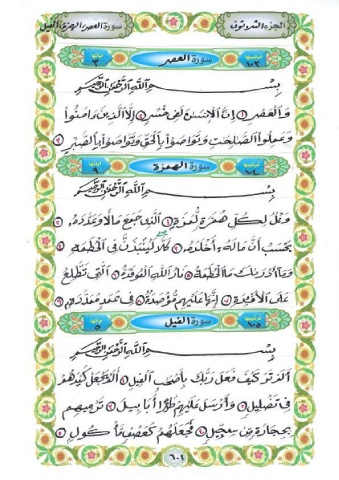 الجزء الثلاثون
سورة العصر، الهمزة، الفيل
ترتيبها ١٠٣ سورة العصر آياتها ٣
بِسْمِ اللَّهِ الرَّحْمَٰنِ الرَّحِيمِ
وَالْعَصْرِ ١ إِنَّ الْإِنسَٰنَ لَفِي خُسْرٍ ٢ إِلَّا الَّذِينَ ءَامَنُوا
وَعَمِلُوا الصَّٰلِحَٰتِ وَتَوَاصَوْا بِالْحَقِّ وَتَوَاصَوْا بِالصَّبْرِ ٣
ترتيبها ١٠٤ سورة الهمزة آياتها ٩
بِسْمِ اللَّهِ الرَّحْمَٰنِ الرَّحِيمِ
وَيْلٌ لِّكُلِّ هُمَزَةٍ لُّمَزَةٍ ١ الَّذِي جَمَعَ مَالًا وَعَدَّدَهُ ٢
يَحْسَبُ أَنَّ مَالَهُ أَخْلَدَهُ ٣ كَلَّا لَيُنبَذَنَّ فِي الْحُطَمَةِ ٤
وَمَا أَدْرَىٰكَ مَا الْحُطَمَةُ ٥ نَارُ اللَّهِ الْمُوقَدَةُ ٦ الَّتِي تَطَّلِعُ
عَلَى الْأَفْـِٔدَةِ ٧ إِنَّهَا عَلَيْهِم مُّؤْصَدَةٌ ٨ فِي عَمَدٍ مُّمَدَّدَةٍ ٩
ترتيبها ١٠٥ سورة الفيل آياتها ٥
بِسْمِ اللَّهِ الرَّحْمَٰنِ الرَّحِيمِ
أَلَمْ تَرَ كَيْفَ فَعَلَ رَبُّكَ بِأَصْحَٰبِ الْفِيلِ ١ أَلَمْ يَجْعَلْ كَيْدَهُمْ
فِي تَضْلِيلٍ ٢ وَأَرْسَلَ عَلَيْهِمْ طَيْرًا أَبَابِيلَ ٣ تَرْمِيهِم
بِحِجَارَةٍ مِّن سِجِّيلٍ ٤ فَجَعَلَهُمْ كَعَصْفٍ مَّأْكُولٍ ٥
٦٠١